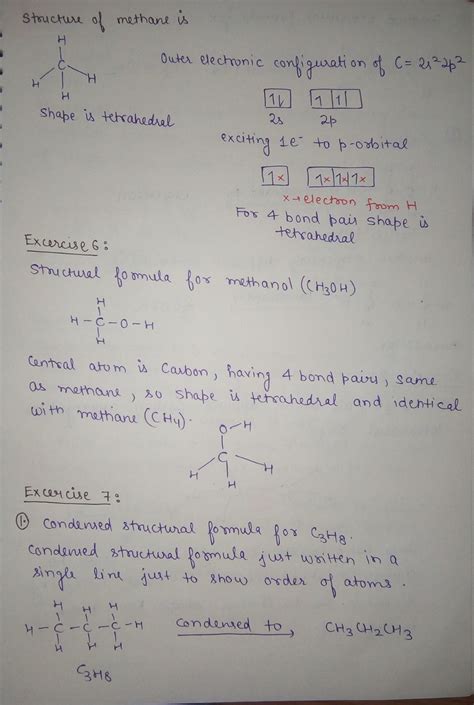 Structure of methane is
H
C
H H
H
Shape is tetrahedral
Outer electronic configuration of C = 2s²2p²
1↓ 1 1
2s 2p
exciting 1e⁻ to p-orbital
1x 1x 1x 1x
x→electron from H
For 4 bond pair shape is
tetrahedral
Excercise 6:
Structural formula for methanol (CH₃OH)
H
H-C-O-H
H
Central atom is Carbon, having 4 bond pairs, same
as methane, so shape is tetrahedral and identical
with methane (CH₄).
O-H
C
H H
H
Excercise 7:
① Condensed structural formula for C₃H₈.
Condensed structural formula just written in a
single line just to show order of atoms.
H H H
H-C-C-C-H
H H H
Condensed to, CH₃CH₂CH₃
C₃H₈